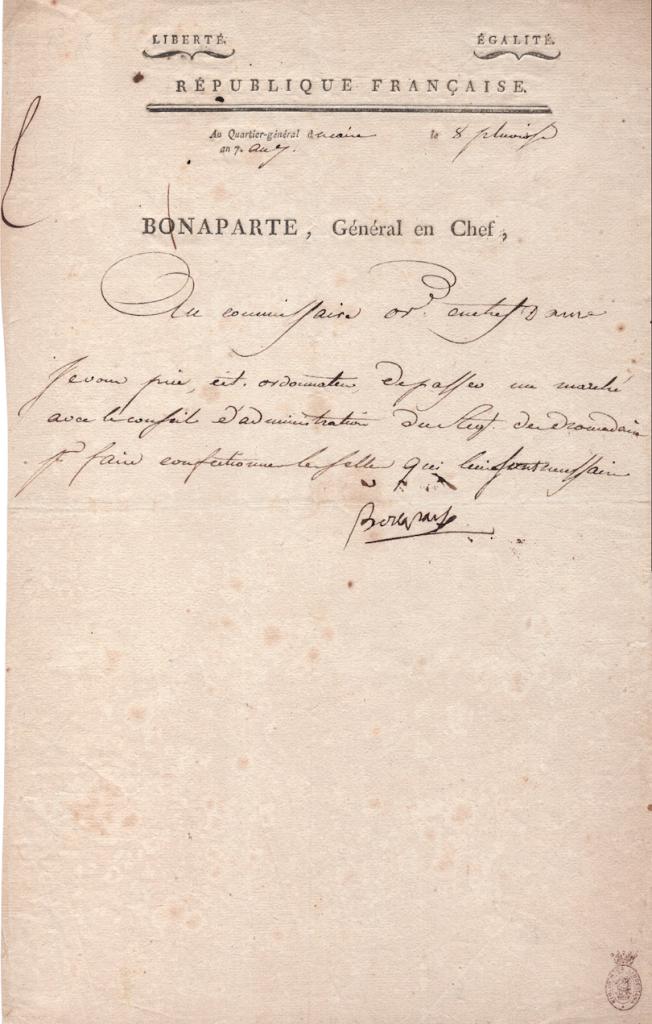 LIBERTÉ. ÉGALITÉ.
RÉPUBLIQUE FRANÇAISE.
Au Quartier-général du Caire le 8 pluviose
an 7. an 7.
BONAPARTE, Général en Chef,
Au commissaire ord.r en chef Daure
Je vous prie, cit. ordonnateur, de passer un marché
avec le conseil d'administration du Reg.t des dromadaires
p.r faire confectionner les selles qui leur sont nécessaires
Bonaparte